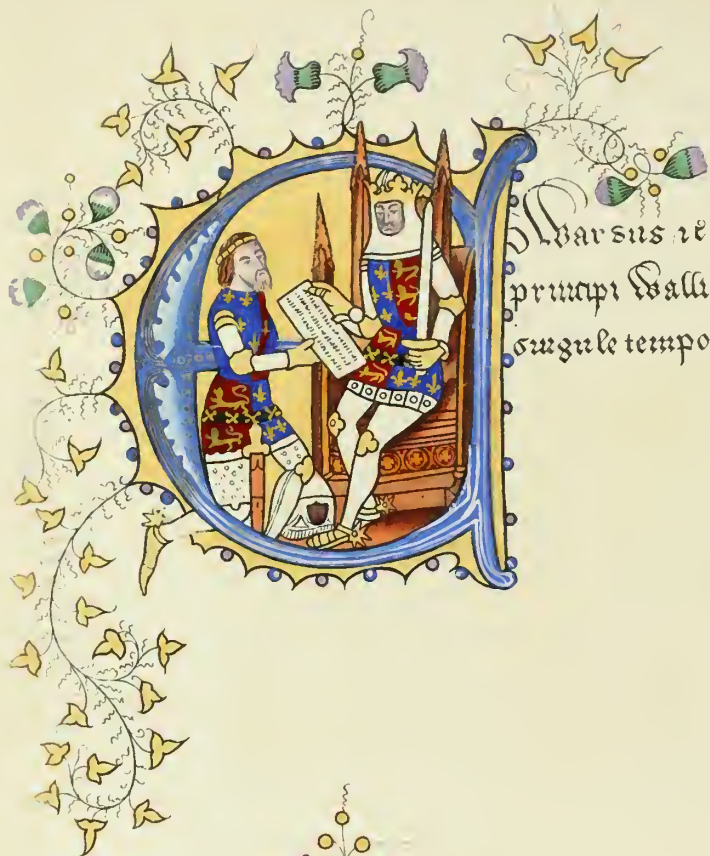 Edwardus re
principi Walli
singule tempo